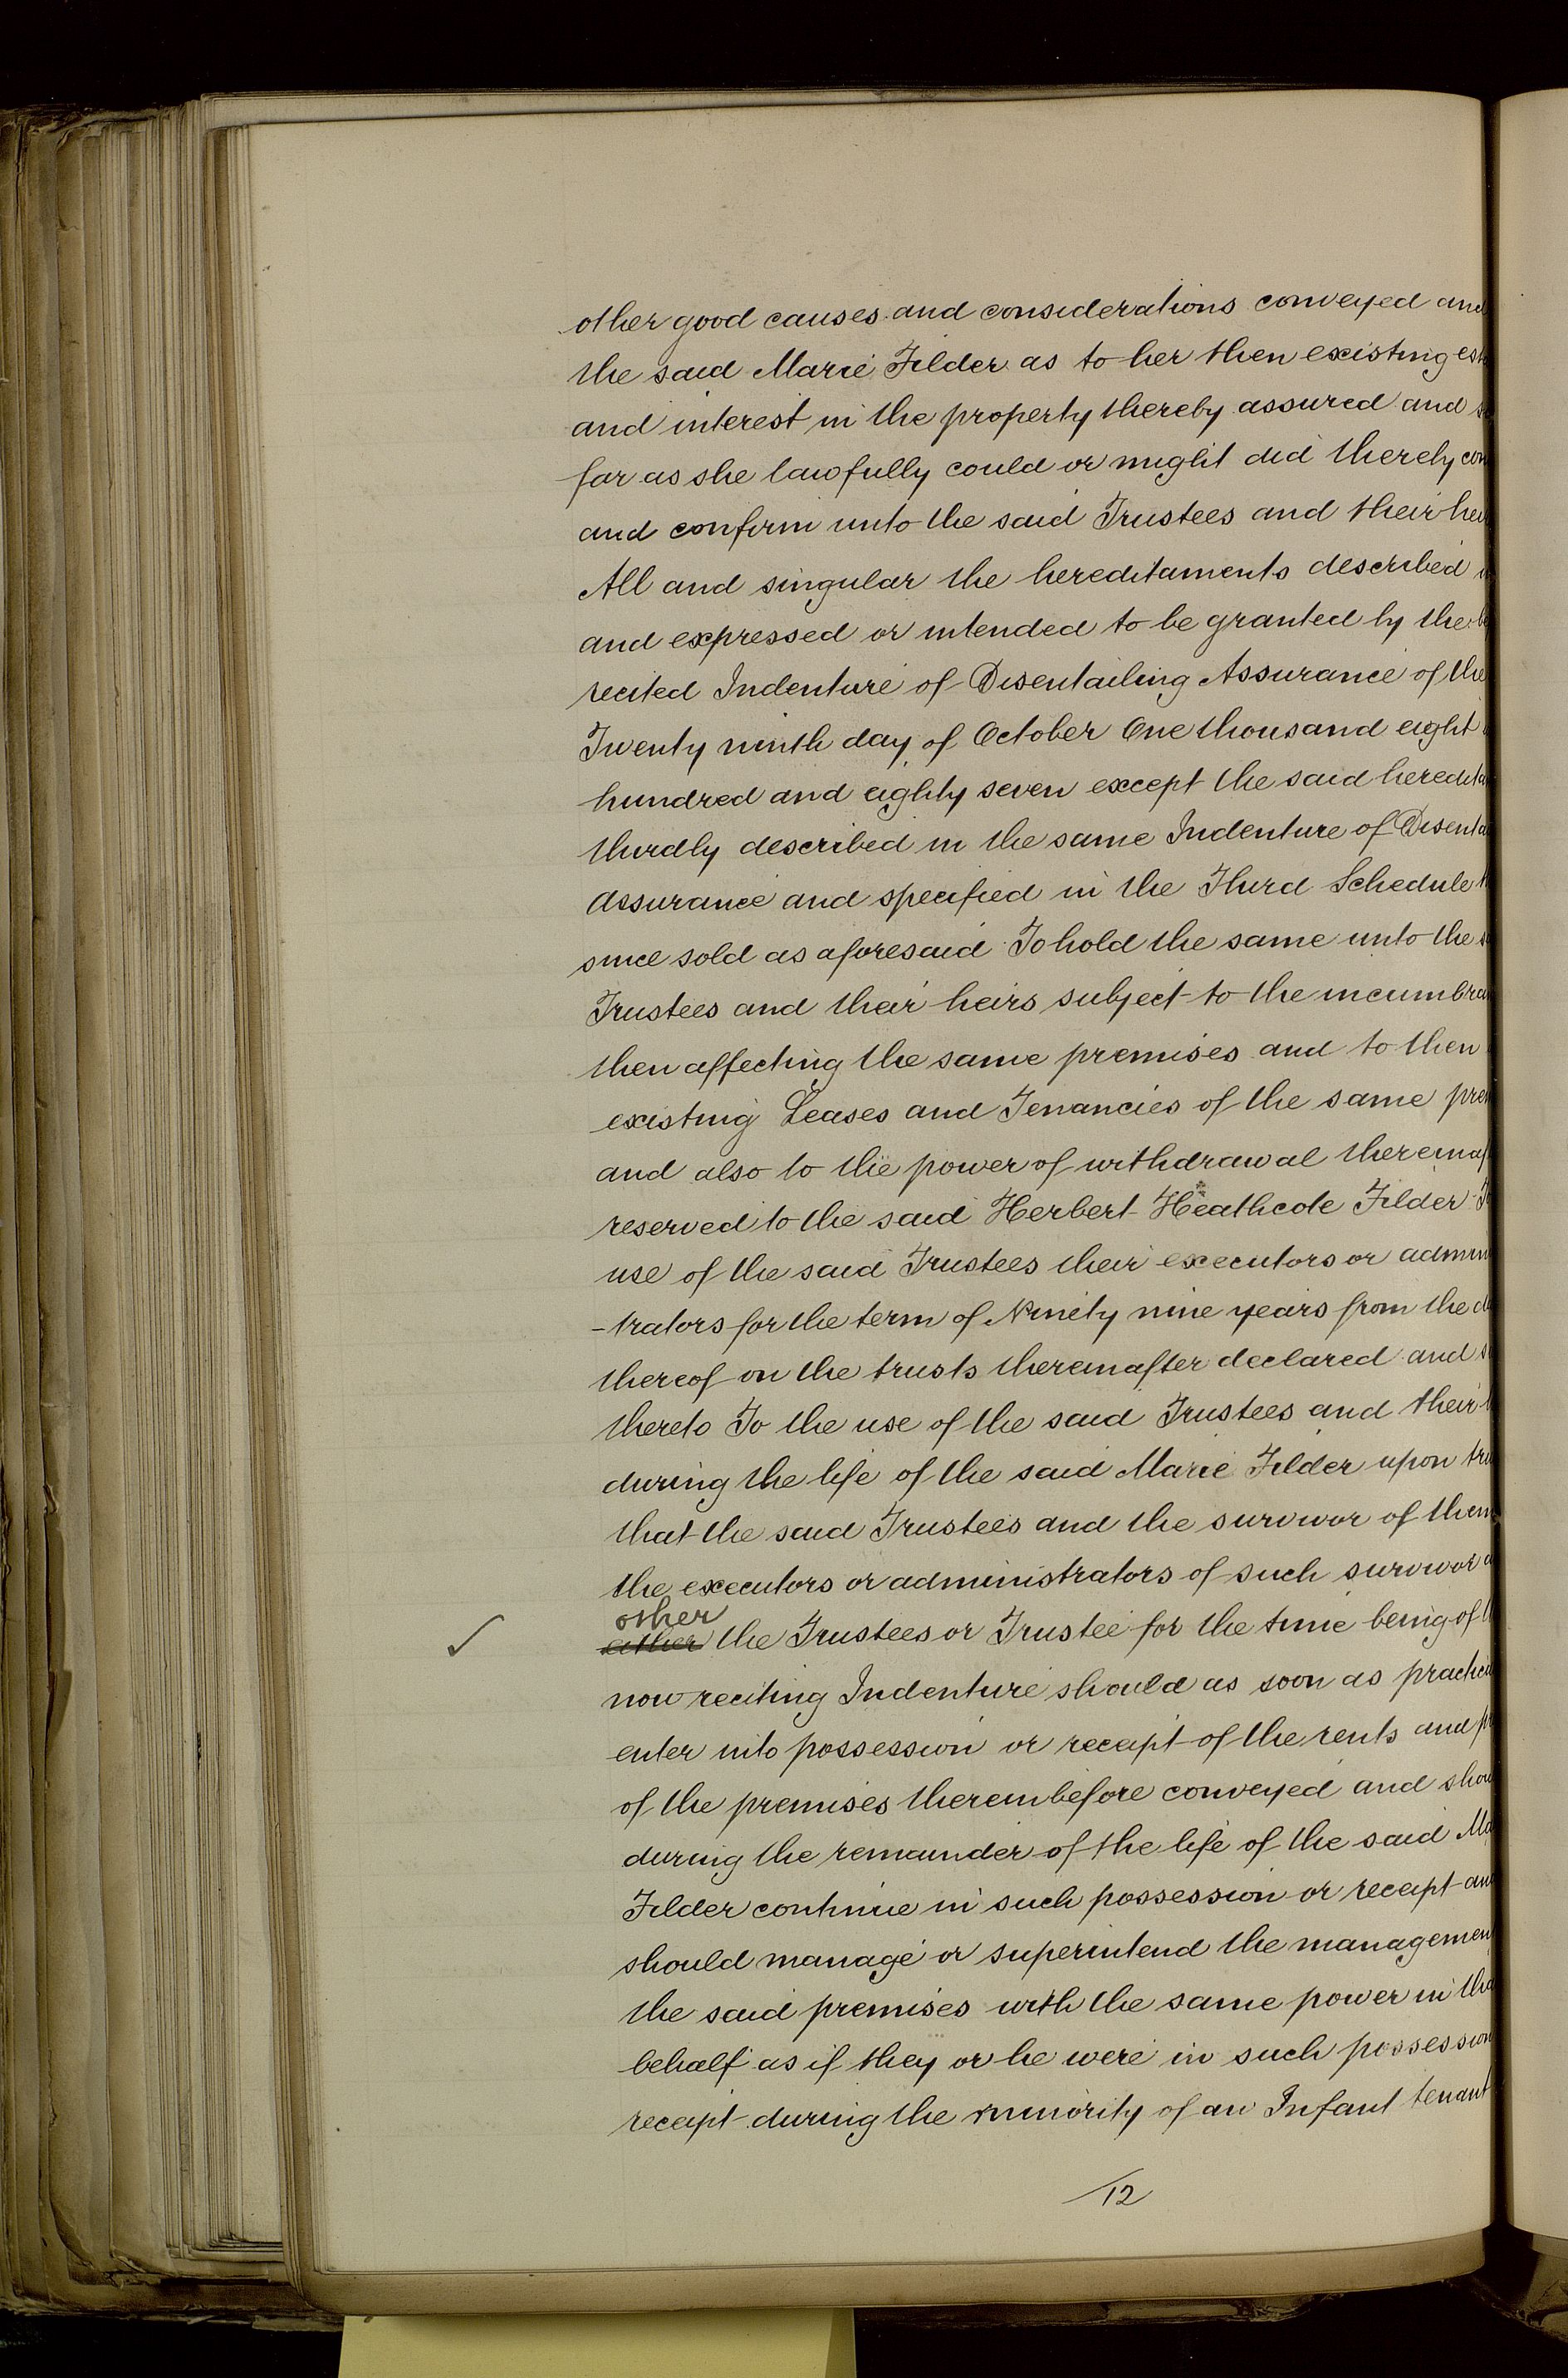 other good causes and considerations conveyed and
the said Marie Filder as to her then existing est
and interest in the property thereby assured and so
far as she lawfully could or might did thereby con
and confirm unto the said Trustees and their hei
All and singular the hereditaments described in
and expressed or intended to be granted by the be
recited Indenture of Disentailing Assurance of the
Twenty ninth day of October One thousand eight
hundred and eighty seven except the said heredita
thirdly described in the same Indenture of Disentai
Assurance and specified in the Third Schedule th
since sold as aforesaid To hold the same unto the s
Trustees and their heirs subject to the incumbran
then affecting the same premises and to then
existing Leases and Tenancies of the same prem
and also to the power of withdrawal thereinaf
reserved to the said Herbert Heathcote Filder To
use of the said Trustees their executors or admin
-trators for the term of Ninety nine years from the d
thereof on the trusts thereinafter declared and s
thereto To the use of the said Trustees and their h
during the life of the said Marie Filder upon tru
that the said Trustees and the survivor of them
the executors or administrators of such survivor o
other
either the Trustees or Trustee for the time being of t
now reciting Indenture should as soon as practica
enter into possession or receipt of the rents and pr
of the premises thereinbefore conveyed and shou
during the remainder of the life of the said Ma
Filder continue in such possession or receipt and
should manage or superintend the managemen
the said premises with the same power in tha
behalf as if they or he were in such possession
receipt during the minority of an Infant tenant
12